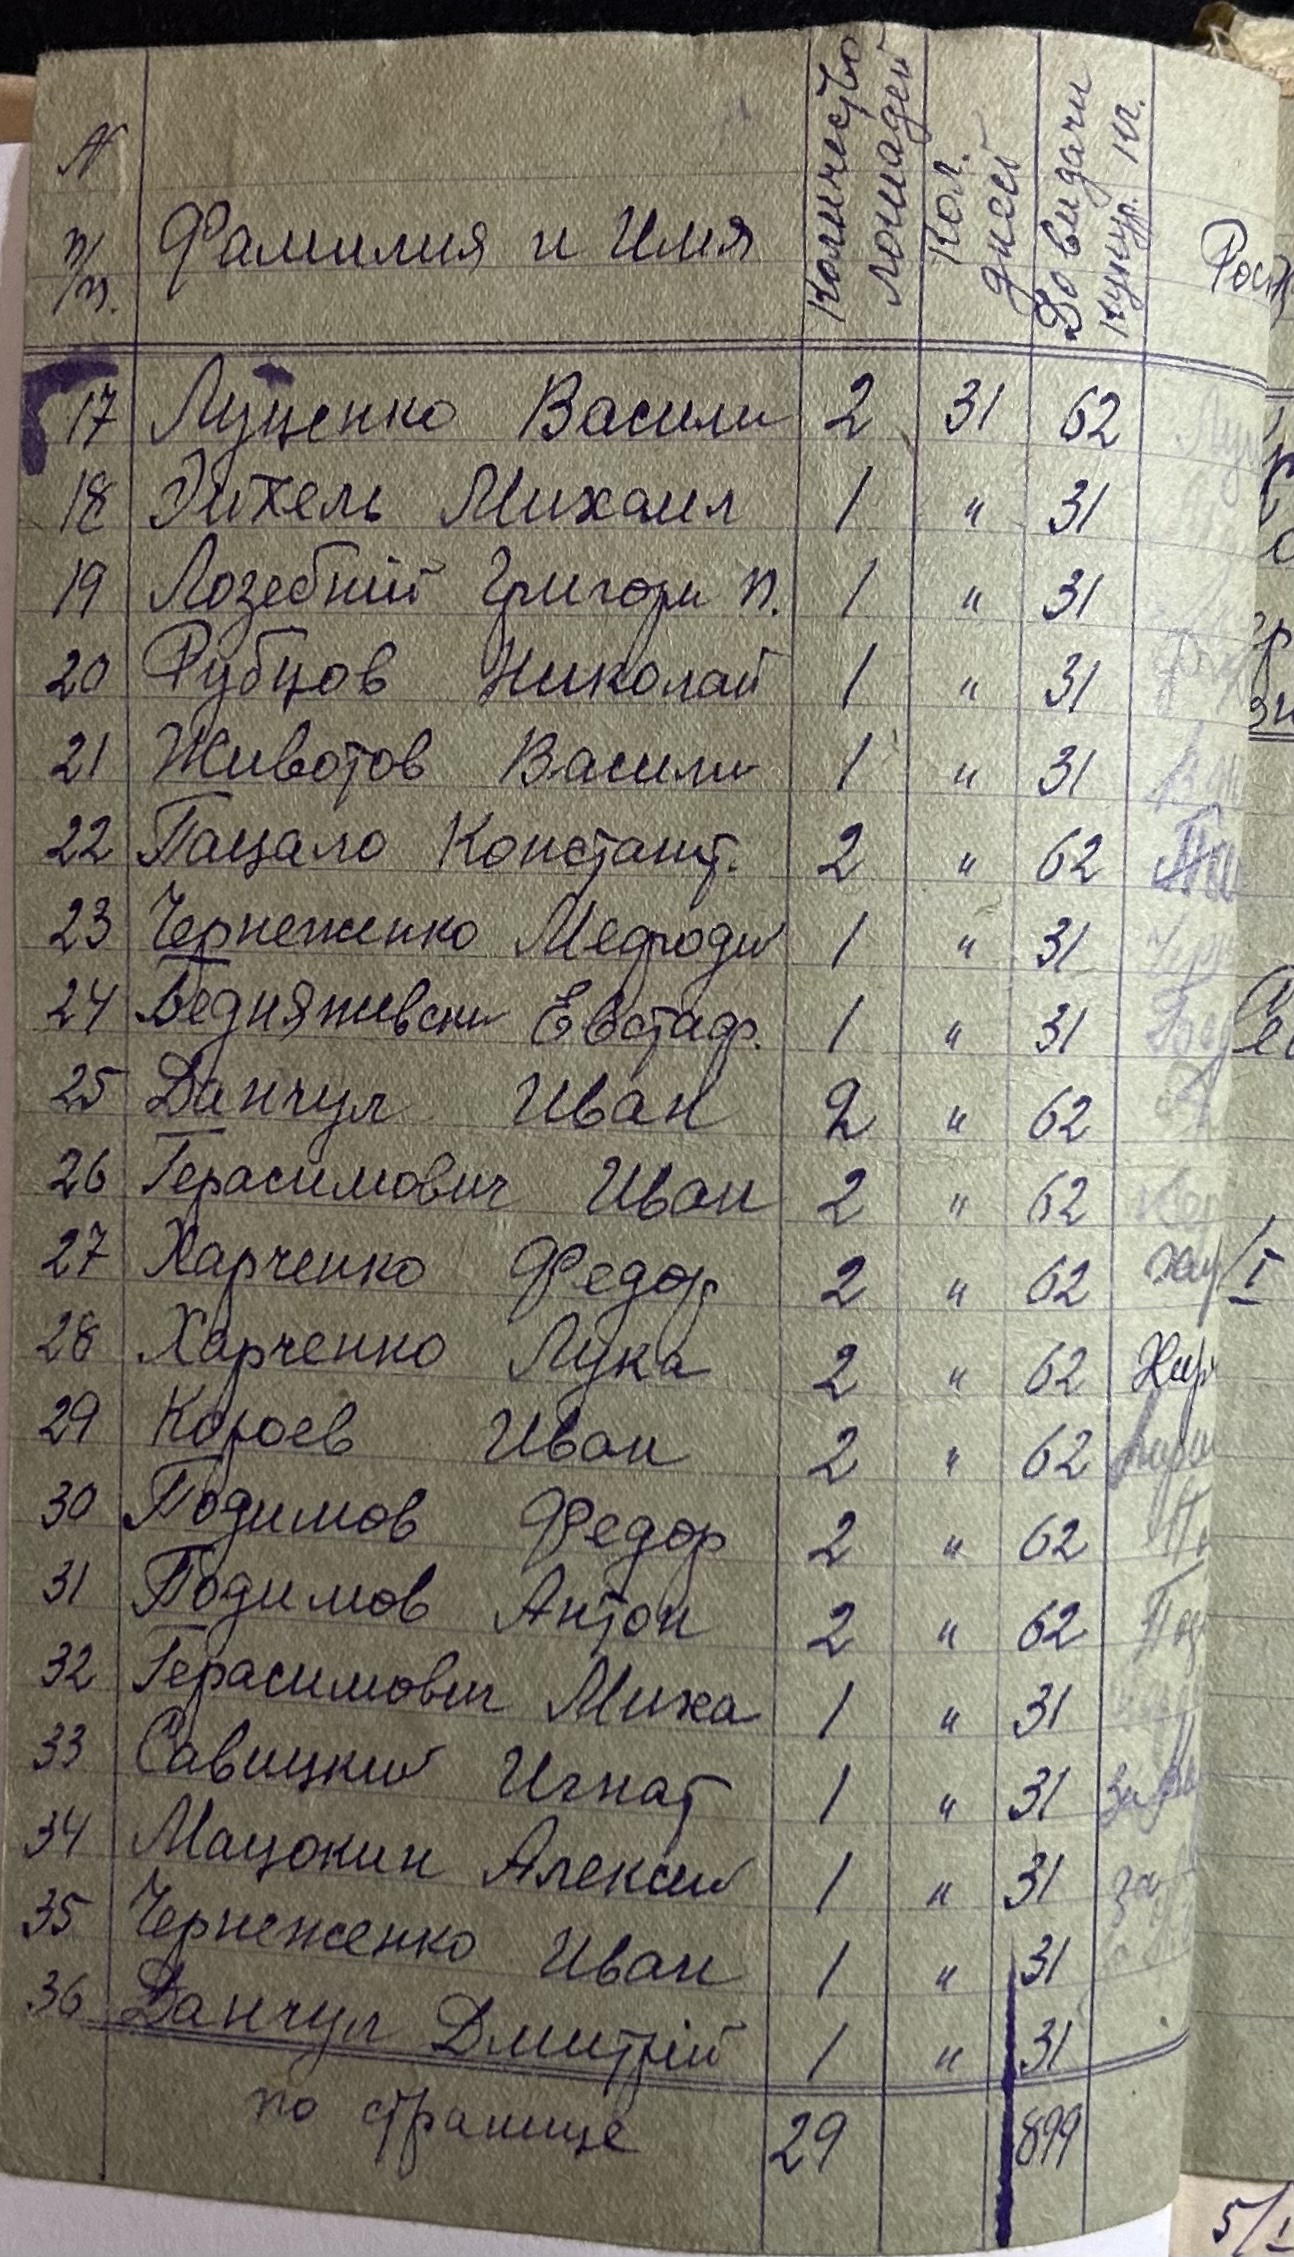 N п/п. Фамилия и Имя Количество лошадей Кол. дней До видачи кукур. кг.
17 Луценко Васили 2 31 62
18 Михаил 1 " 31
19 Лозебній Григори п. 1 " 31
20 Рубцов Николай 1 " 31
21 Животов Васили 1 " 31
22 Пацало Констант. 2 " 62
23 Чернеженко Мефоди 1 " 31
24 Евстаф. 1 " 31
25 Данчул Иван 2 " 62
26 Герасимович Иван 2 " 62
27 Харченко Федор 2 " 62
28 Харченко Лука 2 " 62
29 Короев Иван 2 " 62
30 Подимов Федор 2 " 62
31 Подимов Антон 2 " 62
32 Герасимович Миха 1 " 31
33 Савицкий Игнат 1 " 31
34 Мацокин Алексий 1 " 31
35 Чернеженко Иван 1 " 31
36 Данчул Дмитрій 1 " 31
по странице 29 899
5/I